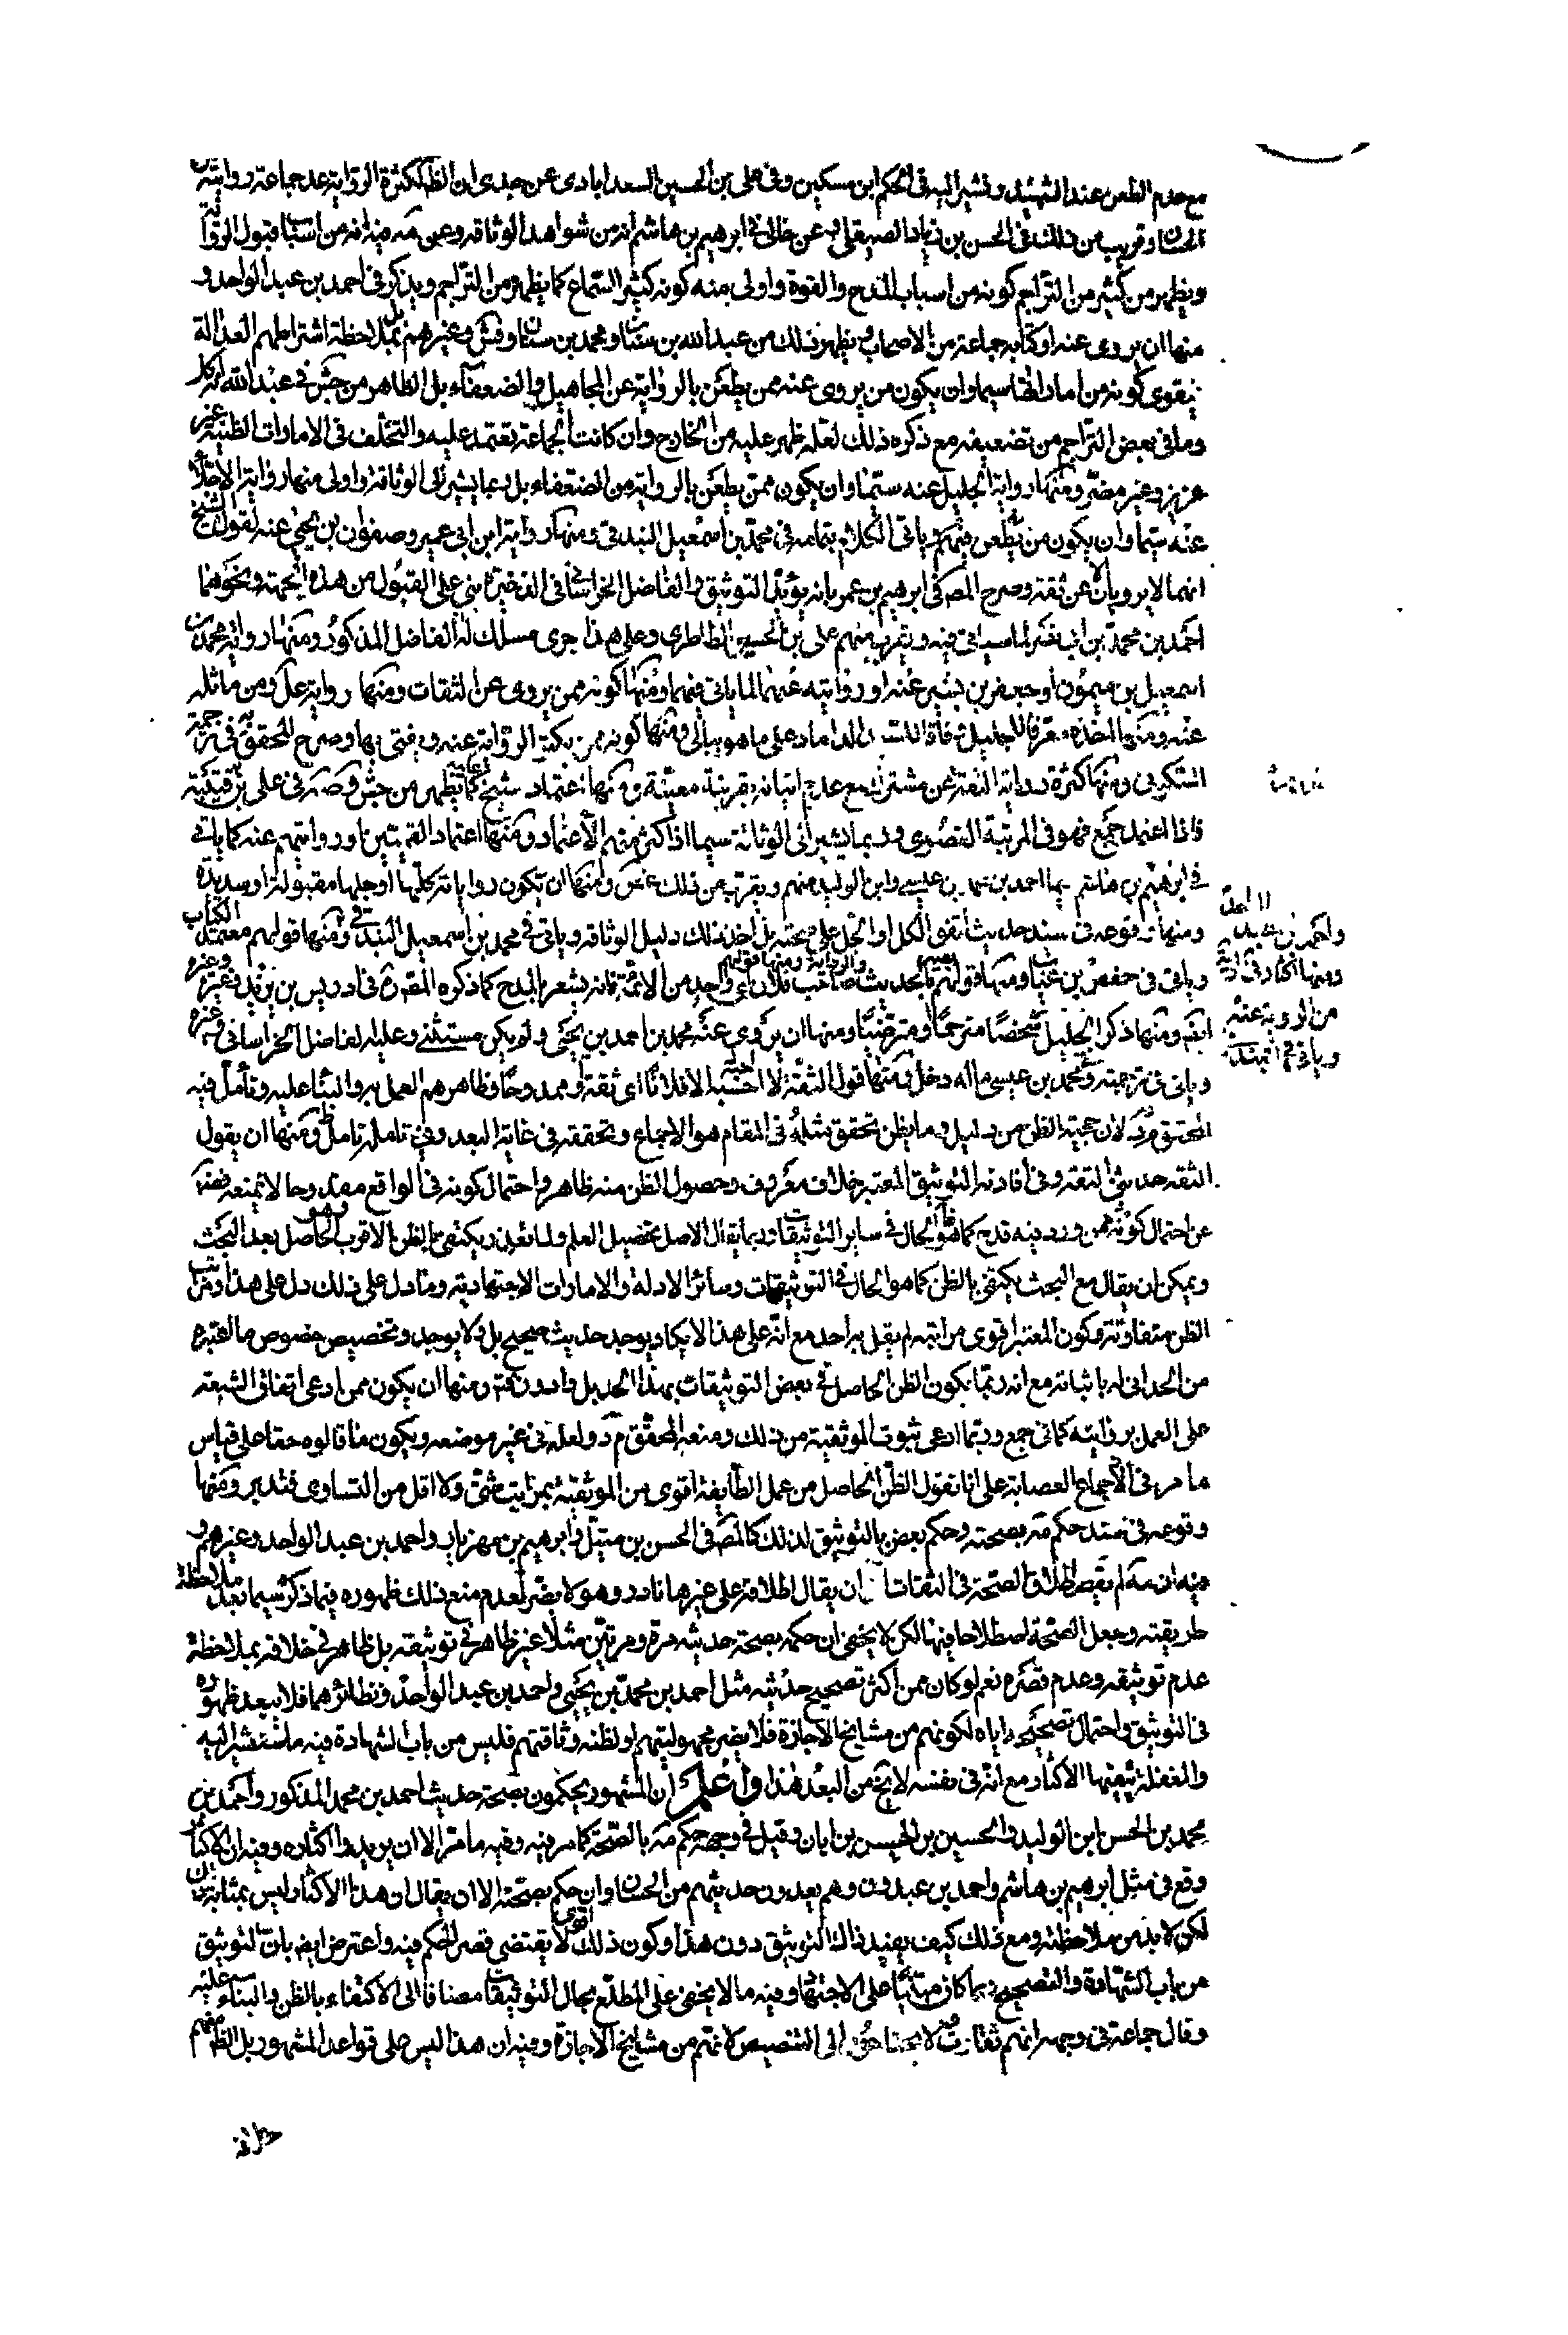 مع عدم الطعن عند الشهيد ونشير اليه فى الحكم ابن مسكين وفى على بن الحسين السعدابادى عن جدى ان الظ لكثرة الرواية عد جماعة روايته من
الحسان وقريب من ذلك فى الحسن بن زياد الصيقل وعن خالى فى ابرهيم بن هاشم انه من شواهد الوثاقة وعن مه فيه انه من اسباب قبول الرواية
ويظهر من كثير من التراجم كونه من اسباب المدح والقوة واولى منه كونه كثير السماع كما يظهر من التراجم ويذكر فى احمد بن عبد الواحد و
منها ان يروى عنه او كتابه جماعة من الاصحاب ويظهر ذلك من عبد الله بن سنان ومحمد بن سنان وفش وغيرهم بل بملاحظة اشتراطهم العدالة
يقوى كونه من امارتها سيما وان يكون من يروى عنه ممن يطعن بالرواية عن المجاهيل والضعفاء بل الظاهر من جش فى عبد الله انه كل
وما فى بعض التراجم من تضعيفه مع ذكره ذلك لعله ظهر عليه من الخارج وان كانت الجماعة تعتمد عليه والتخلف فى الامارات الظنية غير
عزيز وغير مضر ومنها رواية الجليل عنه سيما وان يكون ممن يطعن بالرواية من الضعفاء بل ربما يشير الى الوثاقة واولى منها رواية الاجلاء
عنه سيما وان يكون من يطعن منهم وياتى الكلام بتمامه فى محمد بن اسمعيل البندقى ومنها رواية ابن ابى عمير وصفوان بن يحيى عنه لقول الشيخ
انهما لا يرويان الا عن ثقة وصرح المص فى ابرهيم بن عمر بانه يؤيد التوثيق والفاضل الخراسانى فى الذخيرة بنى على القبول من هذه الجهة ونحوهما
احمد بن محمد بن ابى نصر لما سياتى فيه ويقربه منهم على بن الحسين الطاطرى وعلى هذا جرى مسلك الفاضل المذكور ومنها رواية محمد بن
اسمعيل بن ميمون او جعفر بن بشير عنه او روايته عنهما لما ياتى فيهما ومنها كونه ممن يروى عن الثقات ومنها رواية عل ومن ماثله
عنه ومنها اخذه معرفا للجليل ومنها كونه ممن يكثر الرواية عنه ويفتى بها وصرح المحقق به فى ترجمة
السكونى ومنها كثرة رواية الثقة عن مشترك مع عدم اتيانه بقرينة معينة ومنها اعتماد شيخ عليه كما يظهر من جش وصه فى على بن قتيبة
فاذا اعتمد جمع فهو فى المرتبة القصوى وربما يشير الى الوثاقة سيما اذا كثر منهم الاعتماد ومنها اعتماد القميين او روايتهم عنه كما ياتى
فى ابرهيم بن هاشم سيما احمد بن محمد بن عيسى وابن الوليد منهم ويقرب من ذلك غض ومنها ان تكون رواياته كلها او جلها مقبولة او سديدة
ومنها وقوعه فى سند حديث اتفق الكل او الجل على صحته بل اخذ ذلك دليل الوثاقة وياتى فى محمد بن اسمعيل البندقى ومنها قولهم معتمد الكتاب
وياتى فى حفص بن غياث ومنها قولهم بصير بالحديث والرواية ومنها قولهم صاحب فلان اى واحد من الائمة فانه يشعر بالمدح كما ذكره المص فى ادريس بن يزيد وغيره
ومنها ذكر الجليل شخصا مترحما او مترضيا ومنها ان يروى عنه محمد بن احمد بن يحيى ولم يكن مستثنى وعليه الفاضل الخراسانى وغيره
وياتى فى ترجمته ومحمد بن عيسى ما له دخل ومنها قول الثقة لا احسبه الا فلانا اى ثقة او ممدوحا وظاهرهم العمل به والبناء عليه وتأمل فيه
المحقق لان حجية الظن من دليل وما يظن تحقق مثله فى المقام هو الاجماع وتحققه فى غاية البعد وفى تامله تامل ومنها ان يقول
الثقة حدثنى الثقة وفى افادته التوثيق المعتبر خلاف معروف وحصول الظن منه ظاهر واحتمال كونه فى الواقع مقدوحا لا يمنعه فضلا
عن احتمال كونه ممن ورد فيه قدح كما هو الحال فى ساير التوثيقات وربما يقال الاصل تحصيل العلم ولما تعذر يكتفى بالظن الاقرب وهو الحاصل بعد البحث
ويمكن ان يقال مع البحث يكتفى بالظن كما هو الحال فى التوثيقات وسائر الادلة والامارات الاجتهادية وما دل على ذلك دل على هذا ومراتب
الظن متفاوتة وكون المعتبر اقوى مراتبه لم يقل به احد مع انه على هذا لا يكاد يوجد حديث صحيح بل ولا يوجد وتخصيص خصوص ما اعتبره
من الحد انى له باثباته مع انه ربما يكون الظن الحاصل فى بعض التوثيقات بهذا الحد بل وادون منه ومنها ان يكون ممن ادعى اتفاق الشيعة
على العمل بروايته كما فى جمع وربما ادعى ثبوت الموثقية من ذلك ومنعه المحقق مد ولعله فى غير موضعه ويكون ما قالوه حقا على قياس
ما مر فى الاجماع العصابة على انا نقول الظن الحاصل من عمل الطايفة اقوى من الموثقية بمراتب شتى ولا اقل من التساوى فتدبر ومنها
وقوعه فى سند حكم مه بصحته وحكم بعض بالتوثيق لذلك كالمص فى الحسن بن متيل وابرهيم بن مهزيار واحمد بن عبد الواحد وغيرهم و
فيه ان مه لم يقصر اطلاق الصحة فى الثقات ان يقال اطلاقه على غيرها نادر وهو لا يضر لعدم منع ذلك ظهوره فيما ذكر سيما بعد ملاحظة
طريقته وجعل الصحة اصطلاحا فيها لكن لا يخفى ان حكمه بصحة حديثه مرة ومرتين مثلا غير ظاهر فى توثيقه بل ظاهر فى خلافه بملاحظة
عدم توثيقه وعدم قصره نعم لو كان ممن اكثر تصحيح حديثه مثل احمد بن محمد بن يحيى واحمد بن عبد الواحد ونظائرهما فلا يبعد ظهوره
فى التوثيق واحتمال تصحيحه اياه لكونهم من مشايخ الاجازة فلا يضر مجهوليتهم او لظنه وثاقتهم فليس من باب الشهادة فيه ما سنشير اليه
والغفلة ينفيها الاكثار مع انه فى نفسه لا يخ من البعد هذا واعلم ان المشهور يحكمون بصحة حديث احمد بن محمد المذكور واحمد بن
محمد بن الحسن ابن الوليد والحسين بن الحسن بن ابان وقيل فى وجهه حكم مه بالصحة كما مر فيه وفيه ما مر الا ان يريدوا اكثاره وفيه ان الاكثار
وقع فى مثل ابرهيم بن هاشم واحمد بن عبدون وهم يعدون حديثهم من الحسان وان حكم بصحته الا ان يقال ان هذا الاكثار ليس بمثابة ذلك
لكن لابد من ملاحظته ومع ذلك كيف يفيد ذاك التوثيق دون هذا وكون ذلك اقوى لا يقتضى قصر الحكم فيه واعترض ايض بان التوثيق
من باب الشهادة والتصحيح ربما كان مبنيا على الاجتهاد وفيه ما لا يخفى على المطلع بحال التوثيقات مضافا الى الاكتفاء بالظن والبناء عليه
وقال جماعة فى وجهه انهم ثقات لا يحتاجون الى التنصيص لانهم من مشايخ الاجازة وفيه ان هذا ليس على قواعد المشهور بل الظ منهم